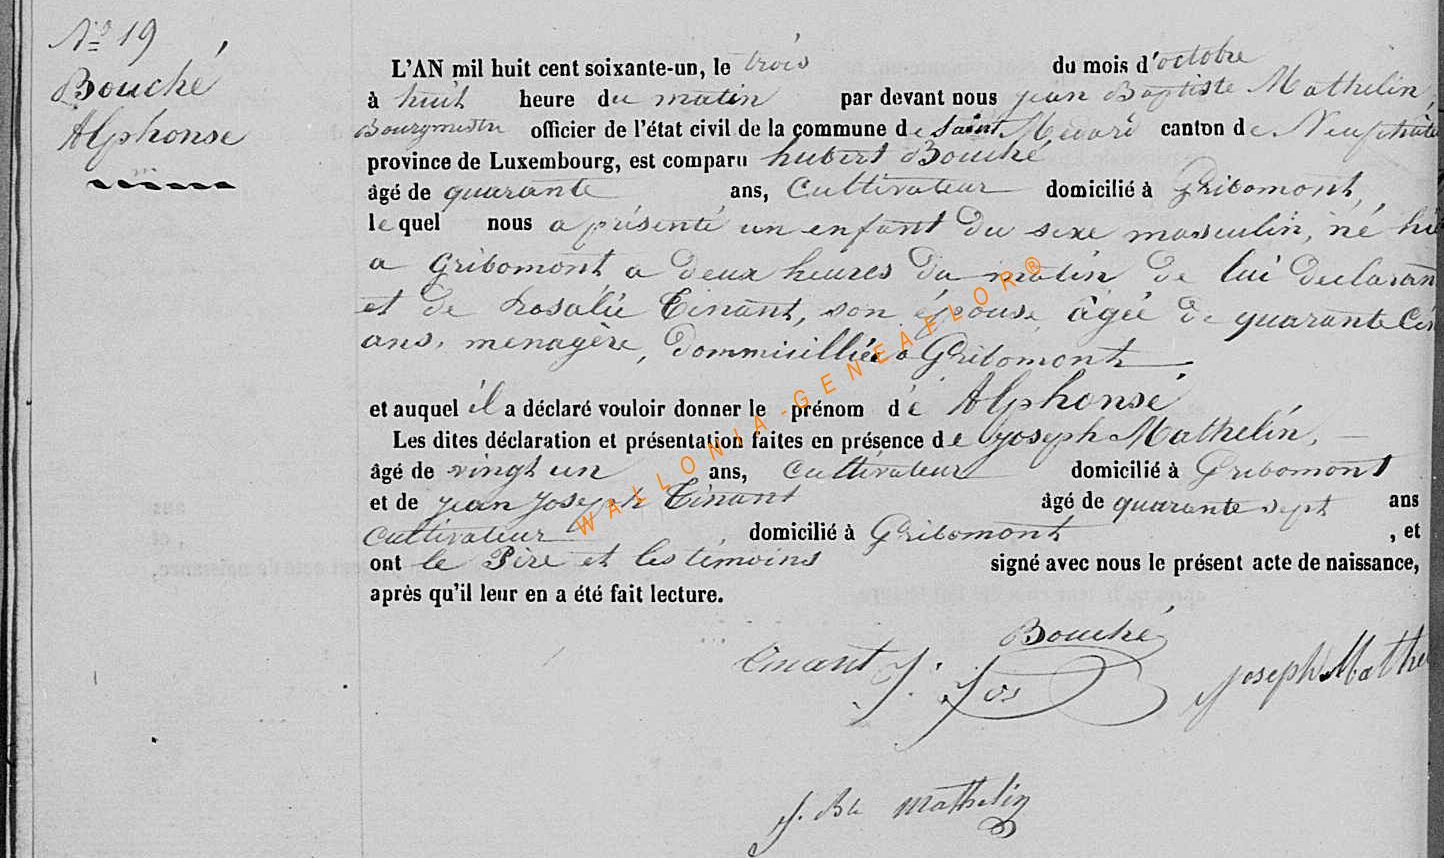 N° 19
Bouché
Alphonse
L'AN mil huit cent soixante-un, le trois du mois d'octobre
à huit heure du matin par devant nous jean Baptiste Mathelin,
Bourgmestre officier de l'état civil de la commune de Saint Médard canton de Neufchate
province de Luxembourg, est comparu hubert Bouché
âgé de quarante ans, Cultivateur domicilié à Gribomont,
le quel nous a présenté un enfant du sexe masculin, né hi
a Gribomont a deux heures du matin de lui declaran
et de Rosalie Tinant, son épouse âgée de quarante Cin
ans, menagère, dommicilliée a Gribomont
et auquel il a déclaré vouloir donner le prénom de Alphonse
Les dites déclaration et présentation faites en présence de joseph Mathelin,
âgé de vingt un ans, Cultivateur domicilié à Gribomont
et de jean joseph Tinant âgé de quarante sept ans
Cultivateur domicilié à Gribomont, et
ont le Père et les témoins signé avec nous le présent acte de naissance,
après qu'il leur en a été fait lecture.
WALLONIA-GENEAFLOR®
Bouché
Tinant J. Jos
Joseph Mathe
J. Bte Mathelin